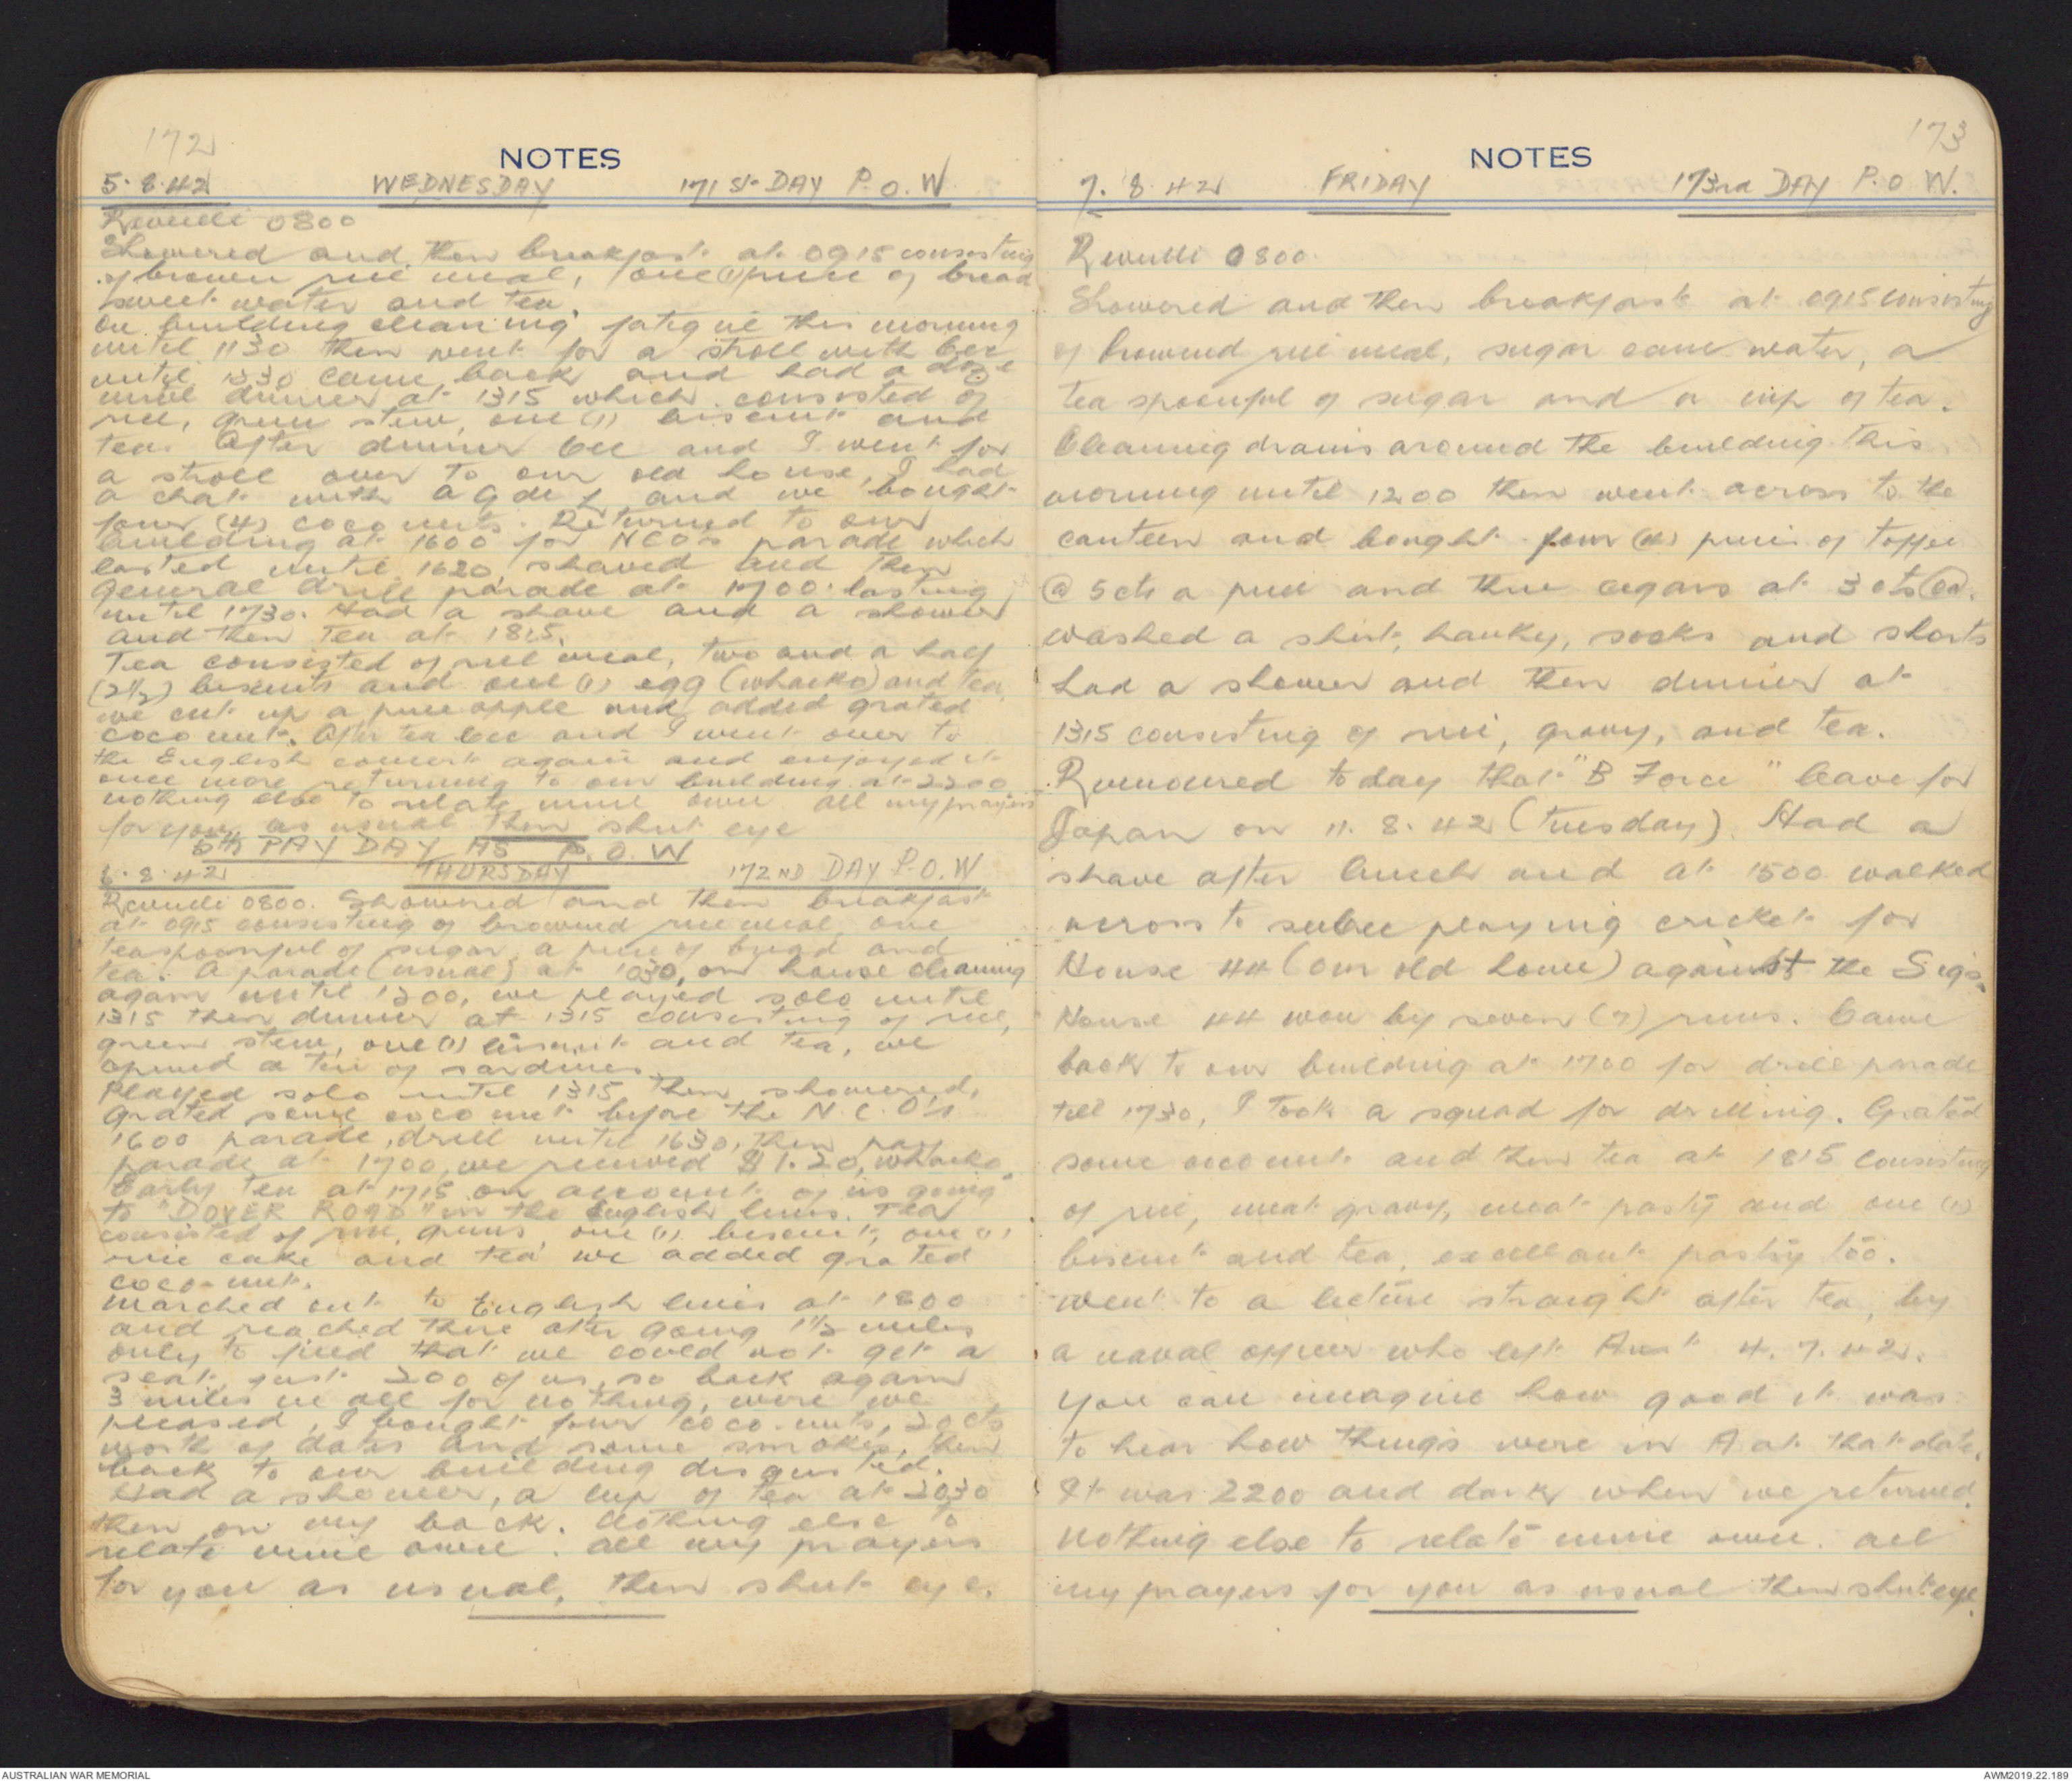 172
NOTES
5.8.42 WEDNESDAY 171st DAY P.O.W
Reveille 0800
Showered and then breakfast at 0915 consisting
of brown rice meal, one (1) piece of bread
sweet water and tea.
On building cleaning fatigue this morning
until 1130 then went for a stroll with Cec
until 1230 came back and had a doze
until dinner at 1315 which consisted of
rice, green stew, one (1) biscuit and
tea. After dinner Cec and I went for
a stroll over to our old house, I had
a chat with and we bought
four (4) coconuts. Returned to our
building at 1600 for NCO's parade which
lasted until 1620, shaved and then
general drill parade at 1700 lasting
until 1730. Had a shave and a shower
and then tea at 1815.
Tea consisted of rice meal, two and a half
(2½) biscuits and one (1) egg (whacko) and tea,
we cut up a pineapple and added grated
coconut. After tea Cec and I went over to
the English concert again and enjoyed it
once more returning to our building at 2200
nothing else to relate mine own all my prayers
for you as usual then shut eye
5th PAY DAY AS P.O.W
6.8.42 THURSDAY 172ND DAY P.O.W
Reveille 0800. Showered and then breakfast
at 0915 consisting of browned rice meal, one
teaspoonful of sugar, a piece of bread and
tea. A parade (usual) at 1030, on house cleaning
again until 1200, we played solo until
1315 then dinner at 1315 consisting of rice,
green stew, one (1) biscuit and tea, we
opened a tin of sardines.
Played solo until 1315 then showered,
grated some coconut before the N.C.O's
1600 parade, drill until 1630, then pay
parade at 1700, we received $1.20, whacko.
Early tea at 1715 on account of us going
to "DOVER ROAD" in the English lines. Tea
consisted of rice, greens, one (1) biscuit, one (1)
rice cake and tea we added grated
coco-nut.
Marched out to English lines at 1800
and reached there after going 1½ miles
only to find that we could not get a
seat, just 200 of us, so back again
3 miles in all for nothing, were we
pleased, I bought four coco-nuts, 20cts
worth of dates and some smokes, then
back to our building disgusted.
Had a shower, a cup of tea at 2030
then on my back. Nothing else to
relate mine own. All my prayers
for you as usual, then shut eye.
173
NOTES
7.8.42 FRIDAY 173rd DAY P.O.W.
Reveille 0800.
Showered and then breakfast at 0915 consisting
of browned rice meal, sugar cane water, a
tea spoonful of sugar and a cup of tea.
Cleaning drains around the building this
morning until 1200 then went across to the
canteen and bought four (4) pieces of toffee
@ 5cts a piece and three cigars at 3cts ea.
washed a shirt, hanky, socks and shorts
had a shower and then dinner at
1315 consisting of rice, gravy, and tea.
Rumoured today that "B Force" leave for
Japan on 11.8.42 (Tuesday). Had a
shave after lunch and at 1500 walked
across to see Cec playing cricket for
House 44 (our old home) against the Sigs.
House 44 won by seven (7) runs. Came
back to our building at 1700 for drill parade
till 1730, I took a squad for drilling. Grated
some coconut and then tea at 1815 consisting
of rice, meat gravy, meat pasty and one (1)
biscuit and tea, excellant pastry too.
Went to a lecture straight after tea, by
a naval officer who left Aust 4.7.42.
You can imagine how good it was
to hear how things were in A at that date.
It was 2200 and dark when we returned.
Nothing else to relate mine own. All
my prayers for you as usual then shut eye.
AUSTRALIAN WAR MEMORIAL
AWM2019.22.189